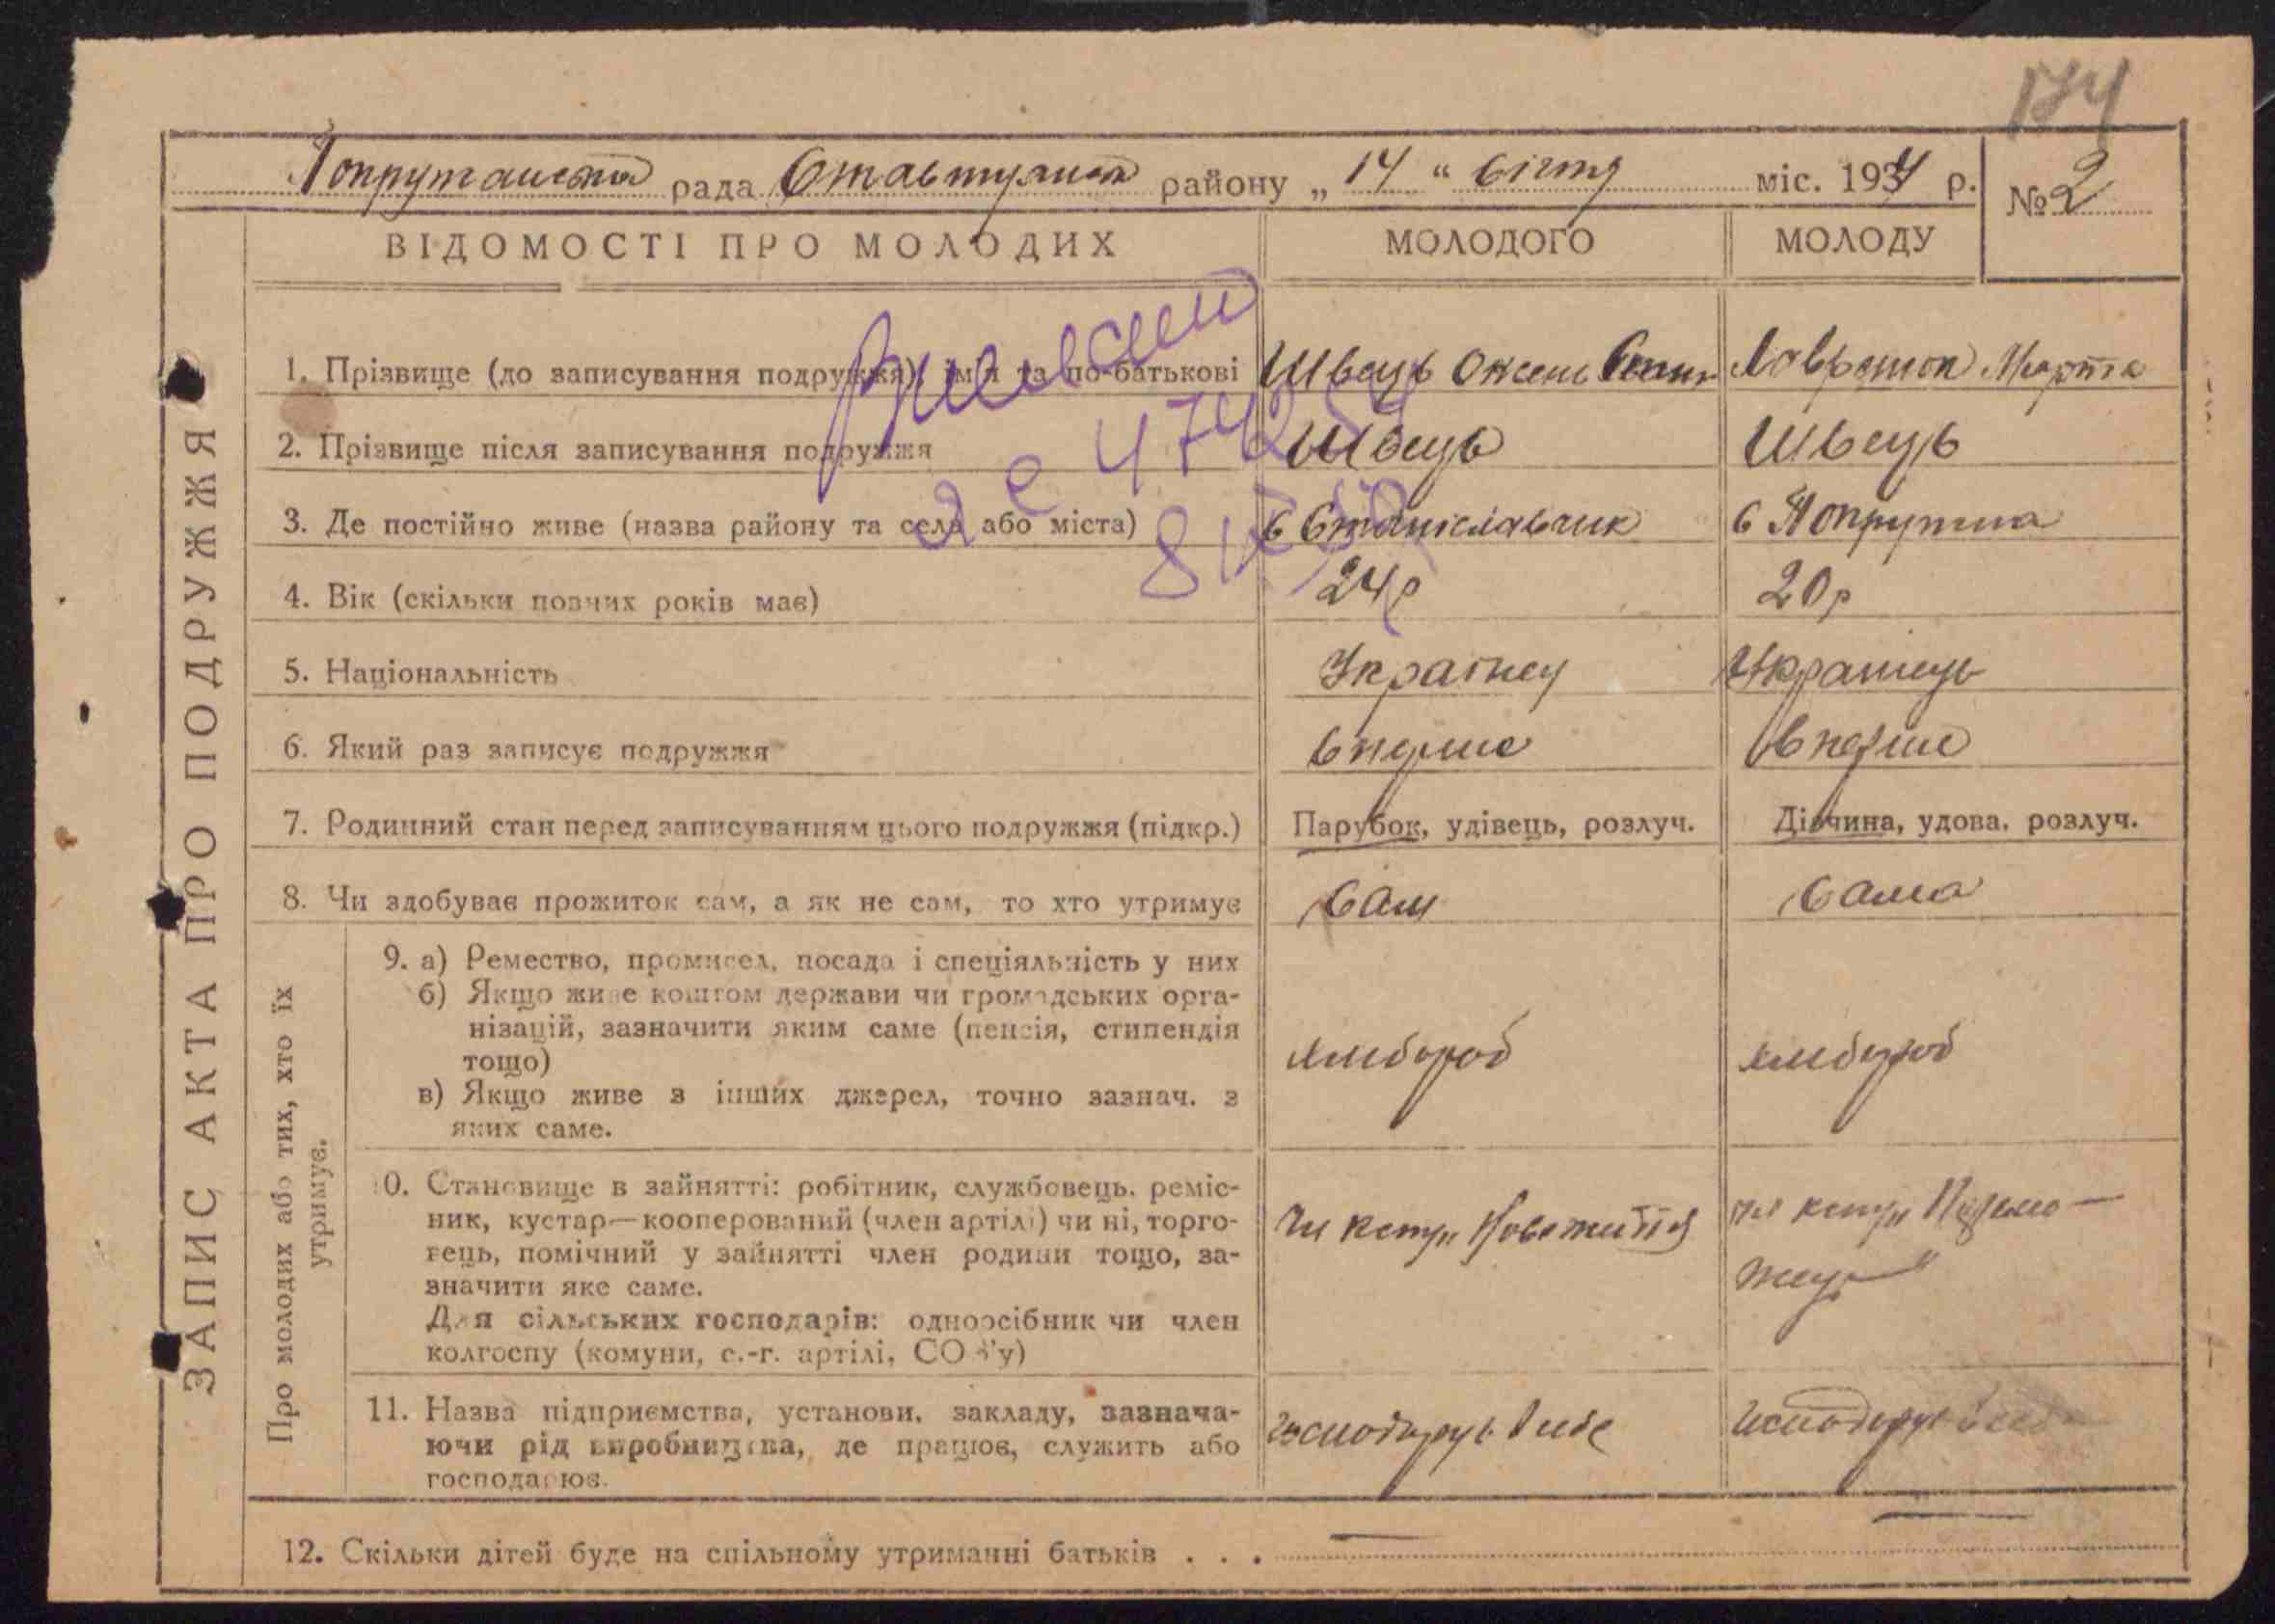 174
рада району „ 14 “ січня міс. 1934 р. № 2
ВІДОМОСТІ ПРО МОЛОДИХ МОЛОДОГО МОЛОДУ
ЗАПИС АКТА ПРО ПОДРУЖЖЯ
1. Прізвище (до записування подружжя), ім'я та по-батькові Швець Марта
2. Прізвище після записування подружжя Швець Швець
3. Де постійно живе (назва району та села або міста) с Станіславчик с Попружна
4. Вік (скільки повних років має) 24р 20р
5. Національність Українец Українець
6. Який раз записує подружжя вперше вперше
7. Родинний стан перед записуванням цього подружжя (підкр.) Парубок, удівець, розлуч. Дівчина, удова, розлуч.
8. Чи здобуває прожиток сам, а як не сам, то хто утримує Сам Сама
Про молодих або тих, хто їх
утримує.
9. а) Ремество, промисел, посада і спеціяльність у них
б) Якщо живе коштом держави чи громадських орга-
нізацій, зазначити яким саме (пенсія, стипендія
тощо)
хлибороб хлибороб
в) Якщо живе з інших джерел, точно зазнач. з
яких саме.
10. Становище в зайнятті: робітник, службовець, реміс-
ник, кустар—кооперований (член артілі) чи ні, торго-
вець, помічний у зайнятті член родини тощо, за-
значити яке саме.
Для сільських господарів: одноосібник чи член
колгоспу (комуни, с.-г. артілі, СОЗ'у)
11. Назва підприємства, установи, закладу, зазнача-
ючи рід виробництва, де працює, служить або
господарює.
12. Скільки дітей буде на спільному утриманні батьків . . . — —